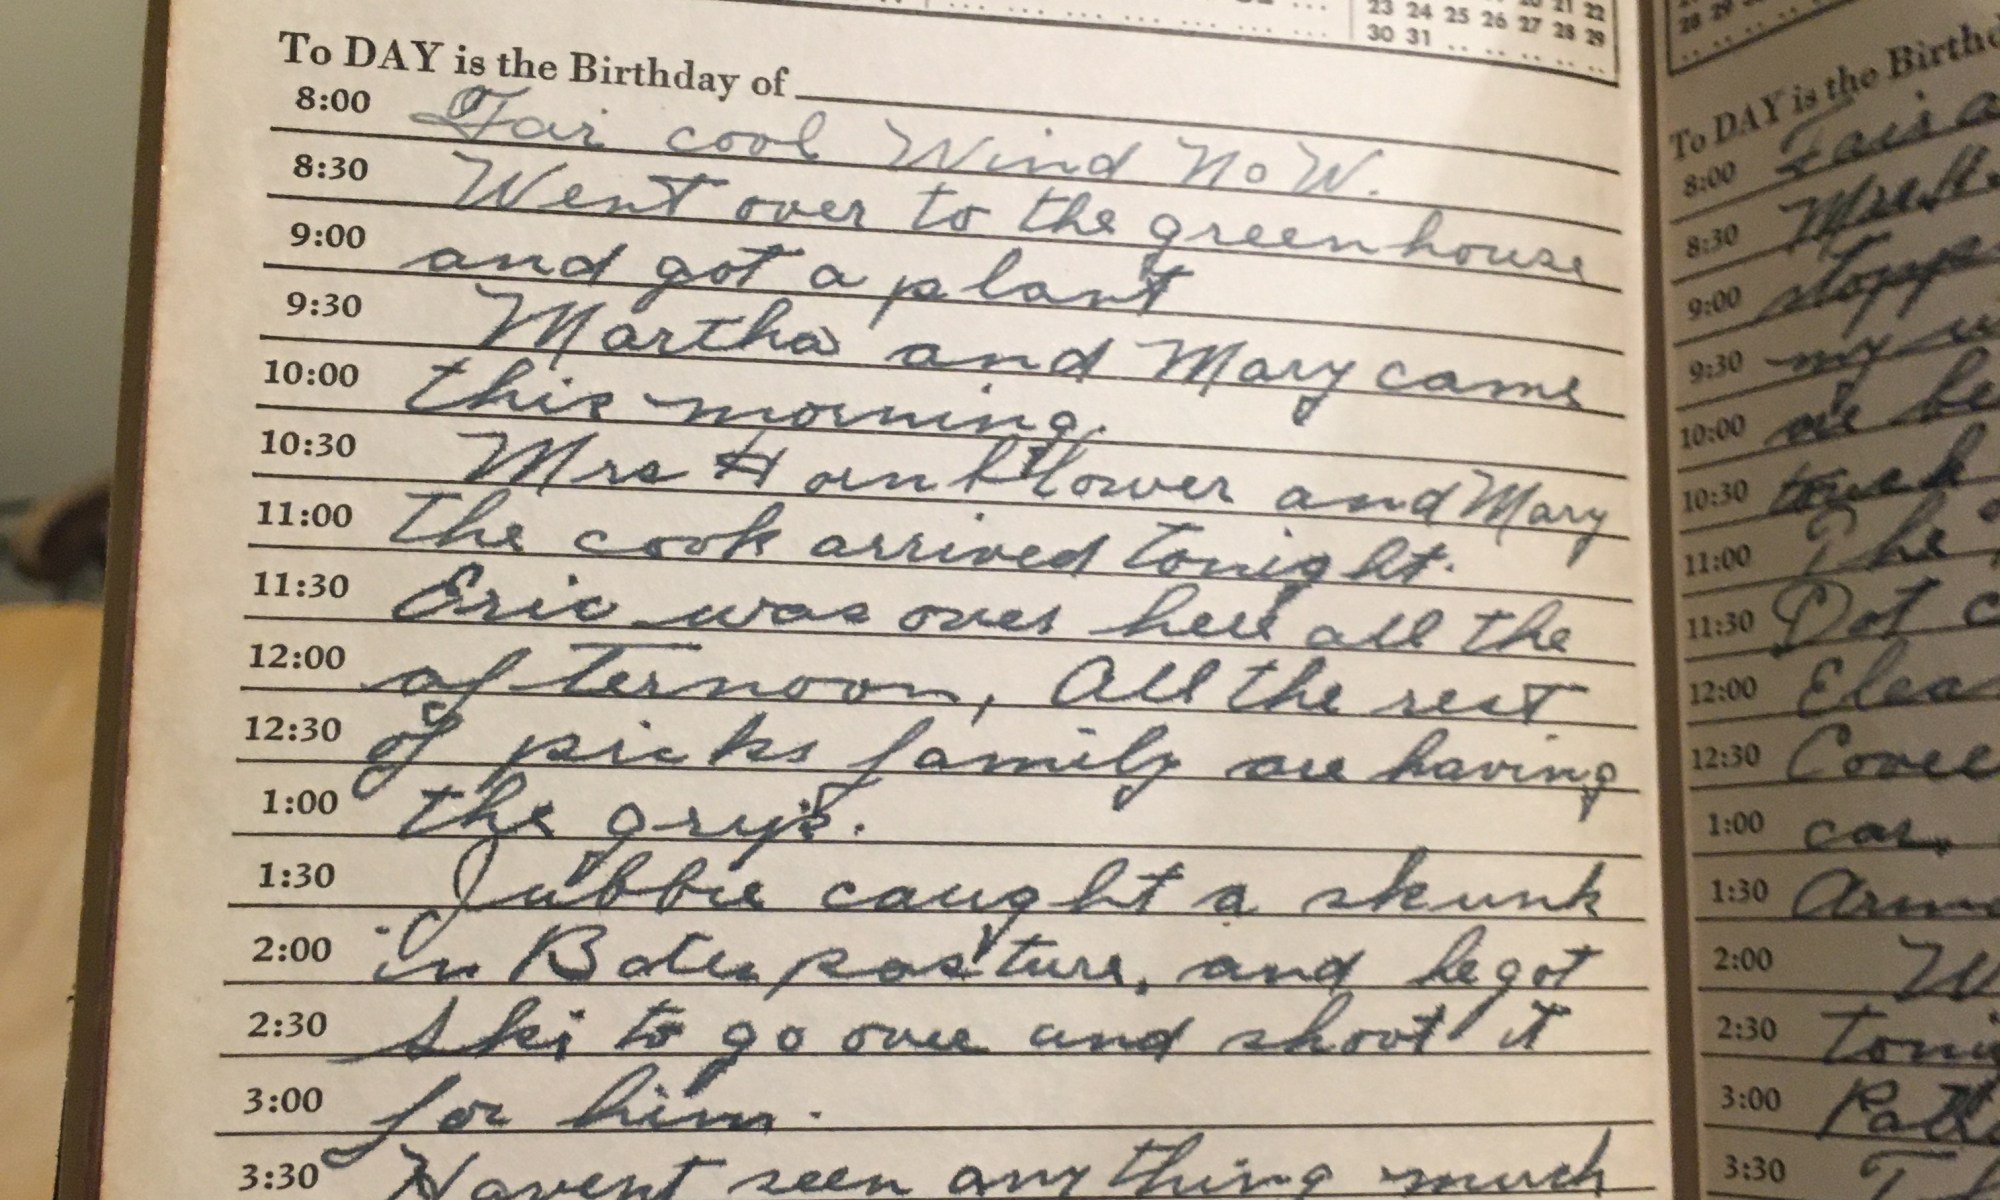 20 21 22
23 24 25 26 27 28 29
30 31
To DAY is the Birthday of
8:00 Fair cool Wind No W.
8:30 Went over to the greenhouse
9:00 and got a plant
9:30 Martha and Mary came
10:00 this morning.
10:30 Mrs Hornblower and Mary
11:00 the cook arrived tonight.
11:30 Eric was over here all the
12:00 afternoon, All the rest
12:30 of picks family are having
1:00 the gryp.
1:30 Jubbie caught a skunk
2:00 in Bates pasture, and he got
2:30 Ski to go over and shoot it
3:00 for him.
3:30 Havent seen anything much
28 29
To DAY is the Birthd
8:00 Fair a
8:30 Mrs H
9:00 stopp
9:30 my
10:00 be
10:30
11:00 The
11:30 Dot c
12:00 Elea
12:30
1:00 car,
1:30
2:00 W
2:30 toni
3:00
3:30